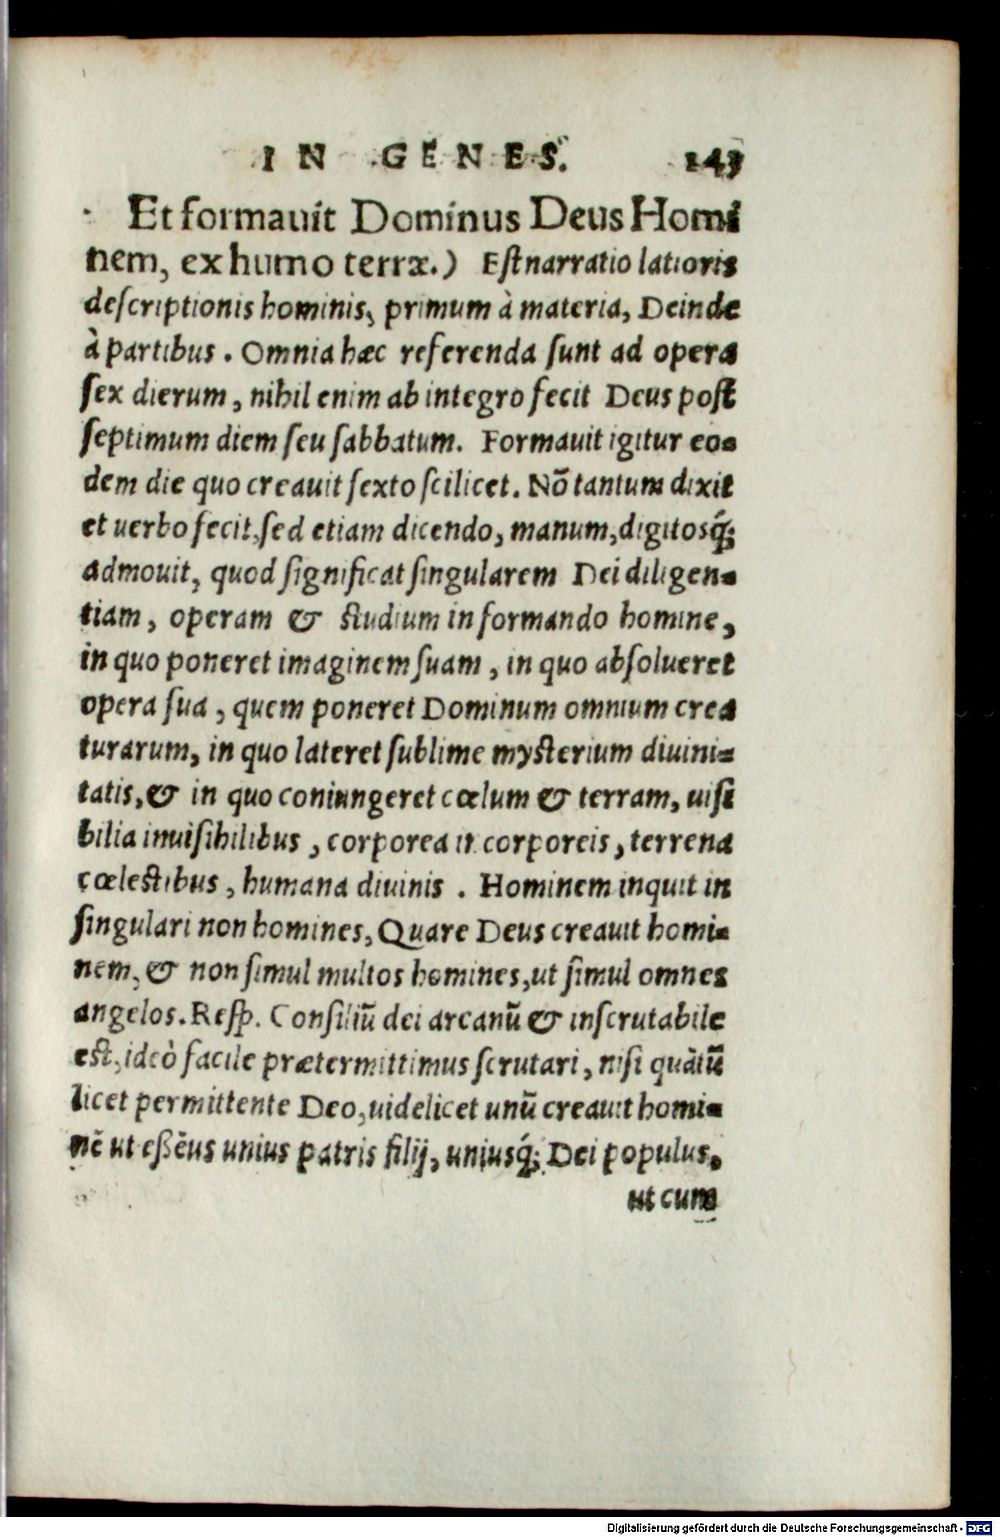 IN GENES. 143
Et formauit Dominus Deus Homi
nem, ex humo terræ.) Est narratio latioris
descriptionis hominis, primum à materia, Deinde
à partibus. Omnia hæc referenda sunt ad opera
sex dierum, nihil enim ab integro fecit Deus post
septimum diem seu sabbatum. Formauit igitur eo-
dem die quo creauit sexto scilicet. Nō tantum dixit
et uerbo fecit, sed etiam dicendo, manum, digitosq́;
admouit, quod significat singularem Dei diligen-
tiam, operam & studium in formando homine,
in quo poneret imaginem suam, in quo absolueret
opera sua, quem poneret Dominum omnium crea
turarum, in quo lateret sublime mysterium diuini-
tatis, & in quo coniungeret cœlum & terram, uisi
bilia inuisibilibus, corporea in corporeis, terrena
cœlestibus, humana diuinis. Hominem inquit in
singulari non homines, Quare Deus creauit homi-
nem, & non simul multos homines, ut simul omnes
angelos. Resp. Consiliū dei arcanū & inscrutabile
est, ideò facile prætermittimus scrutari, nisi quātū
licet permittente Deo, uidelicet unū creauit homi-
nē ut essēus unius patris filij, uniusq́; Dei populus,
ut cum
Digitalisierung gefördert durch die Deutsche Forschungsgemeinschaft - DFG